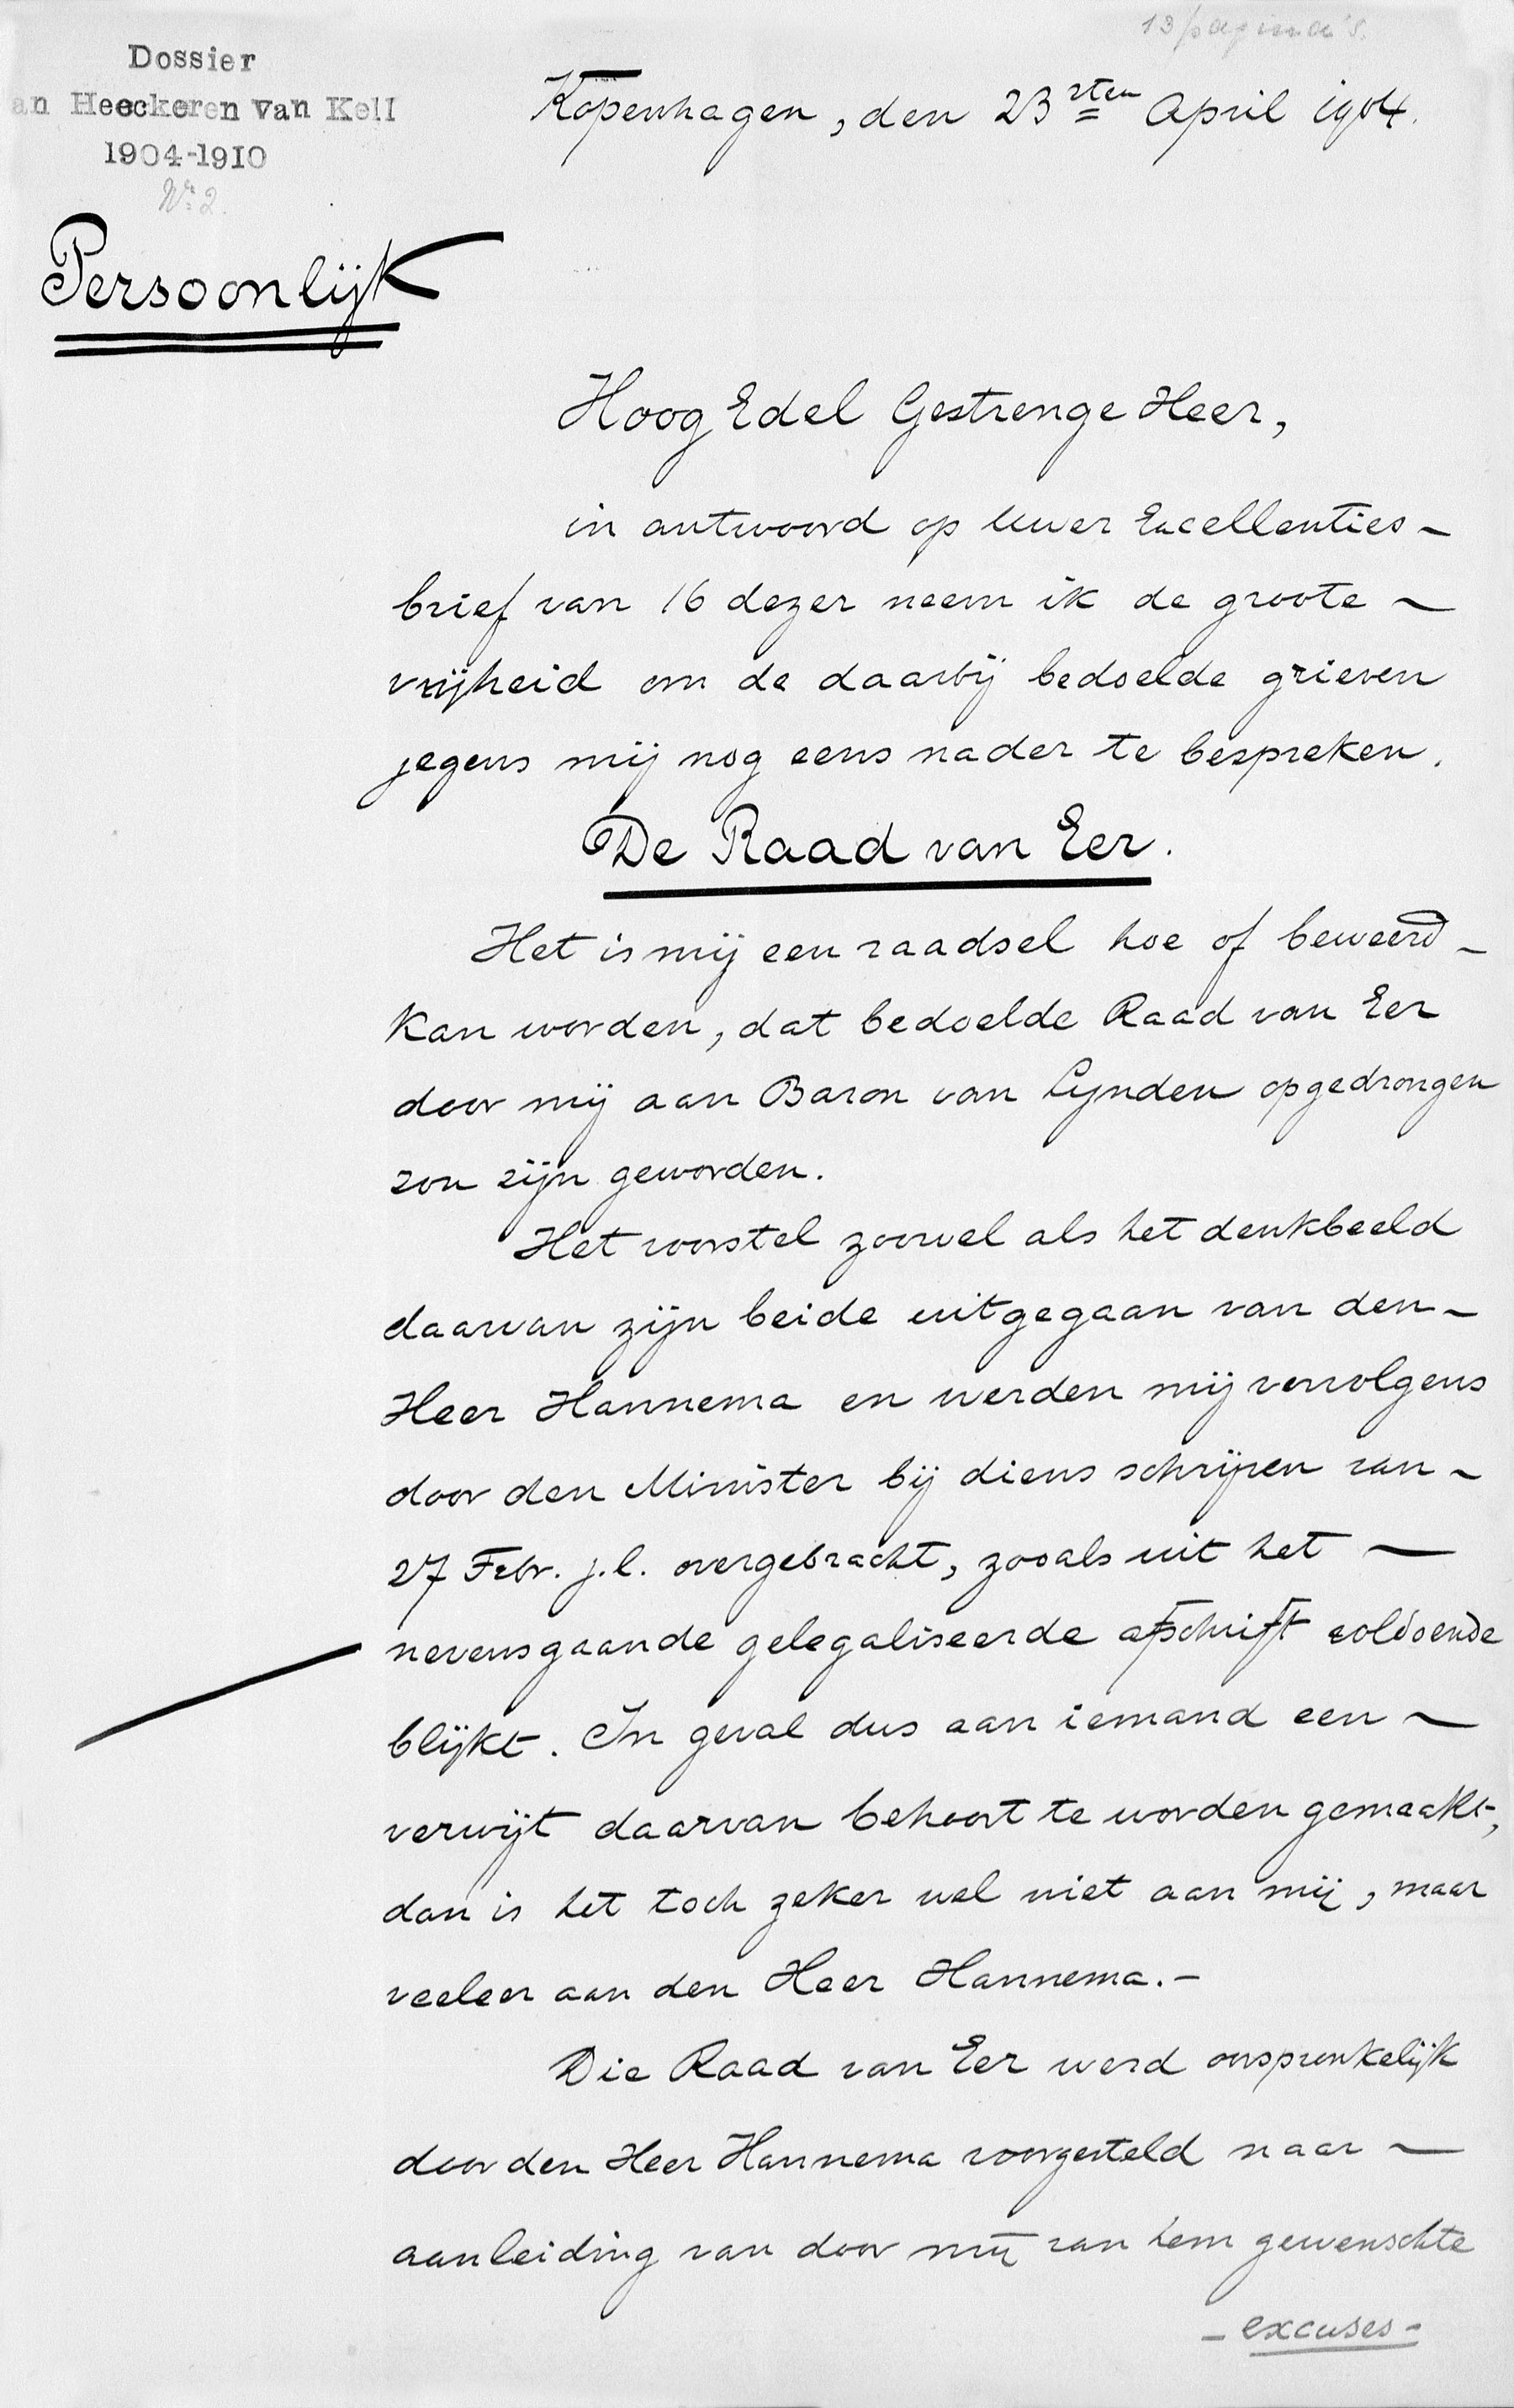 13 pagina's.
Dossier
an Heeckeren van Kell
1904-1910
No 2.
Kopenhagen, den 23sten April 1904.
Persoonlijk
Hoog Edel Gestrenge Heer,
in antwoord op Uwer Excellenties -
brief van 16 dezer neem ik de groote -
vrijheid om de daarbij bedoelde grieven
jegens mij nog eens nader te bespreken.
De Raad van Eer.
Het is mij een raadsel hoe of beweerd -
kan worden, dat bedoelde Raad van Eer
door mij aan Baron van Lynden opgedrongen
zou zijn geworden.
Het voorstel zoowel als het denkbeeld
daarvan zijn beide uitgegaan van den -
Heer Hannema en werden mij vervolgens
door den Minister bij diens schrijven van -
27 Febr. j.l. overgebracht, zooals uit het -
nevensgaande gelegaliseerde afschrift voldoende
blijkt. In geval dus aan iemand een -
verwijt daarvan behoort te worden gemaakt,
dan is het toch zeker wel niet aan mij, maar
veeleer aan den Heer Hannema. -
Die Raad van Eer werd oorspronkelijk
door den Heer Hannema voorgesteld naar -
aanleiding van door mij van hem gewenschte
- excuses -